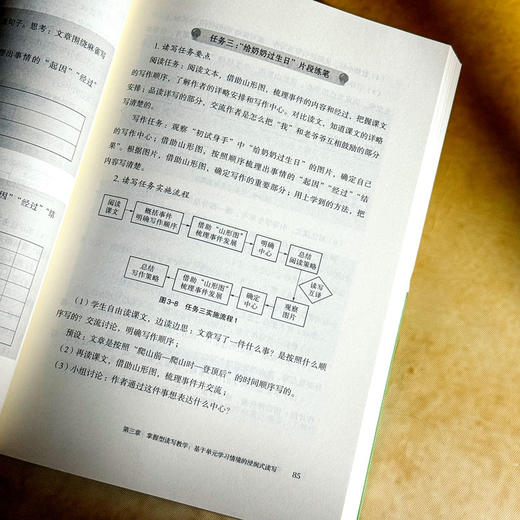 述句子。思考：文章围绕麻雀写
理出事情的“起因”“经过”
因”“经过”“结
任务三：“给奶奶过生日”片段练笔
1. 读写任务要点
阅读任务：阅读文本，借助山形图，梳理事件的内容和经过，把握课文
的写作顺序，了解作者的详略安排和写作中心。对比读文，知道课文的详略
安排；品读详写的部分，交流作者是怎么把“我”和老爷爷互相鼓励的部分
写清楚的。
写作任务：观察“初试身手”中“给奶奶过生日”的图片，确定自己
的写作中心；借助山形图，按照顺序梳理出事情的“起因”“经过”“结
果”。根据图片，借助山形图，确定写作的重要部分；用上学到的方法，把
内容写清楚。
2. 读写任务实施流程
阅读课文
概括事件 明确写作顺序
借助“山形图” 梳理事件发展
明确中心
总结 阅读策略
读写互译
观察图片
确定中心
借助“山形图” 梳理事件发展
总结 写作策略
图3-8 任务三实施流程1
（1）学生自由读课文，边读边思：文章写了一件什么事？是按照什么顺
序写的？交流讨论，明确写作顺序；
预设：文章是按照“爬山前—爬山时—登顶后”的时间顺序写的。
（2）再读课文，借助山形图，梳理事件并交流；
（3）小组讨论：作者通过这件事想表达什么中心？
第三章 掌握型读写教学：基于单元学习情境的浸润式读写
85